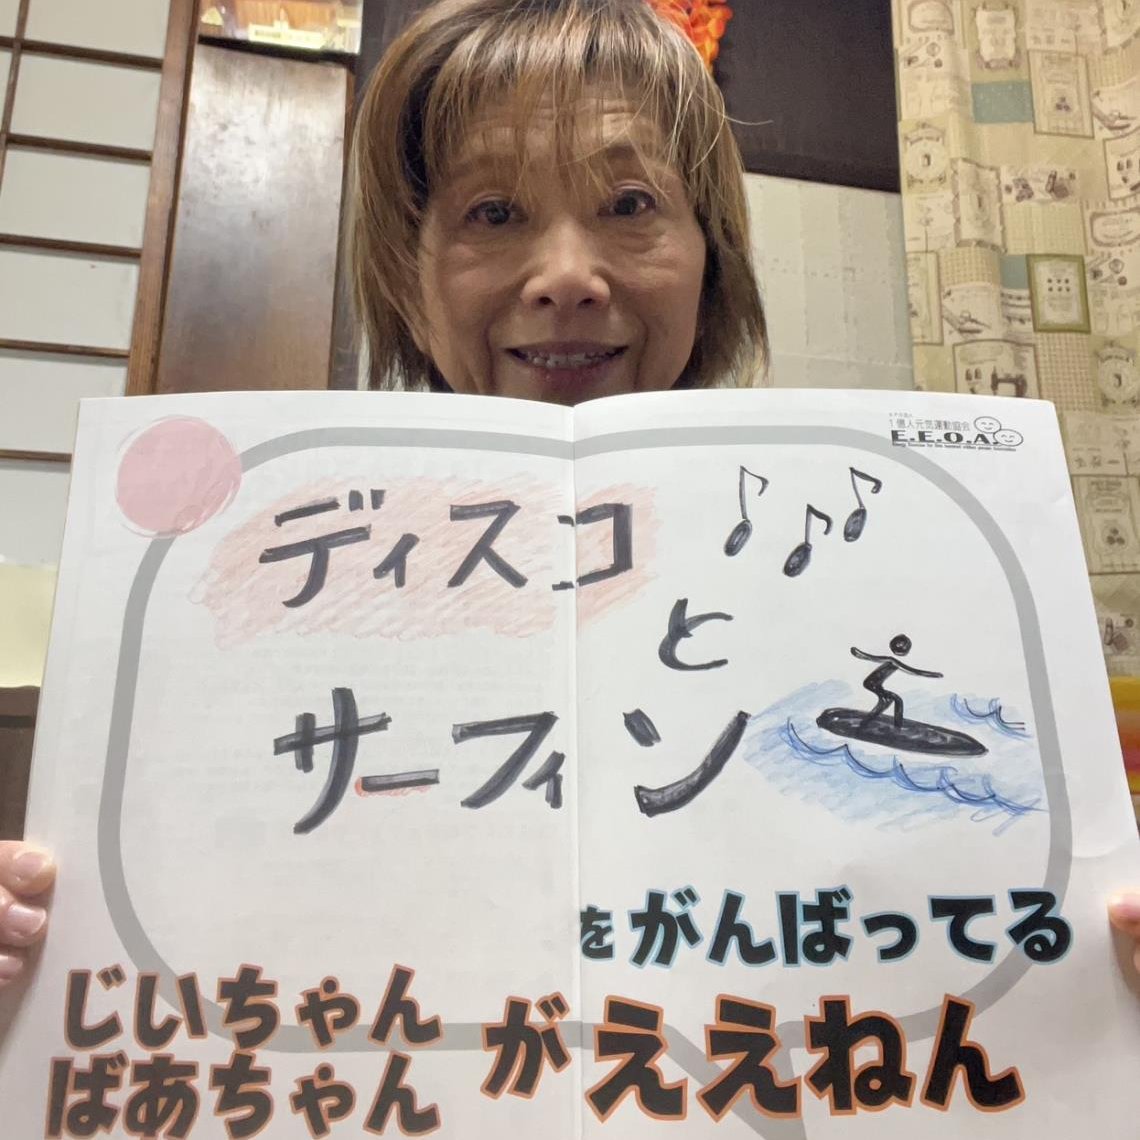 1億人元気運動協会
E.E.O.A.
ディスコ
と
サーフィン
をがんばってる
じいちゃん
ばあちゃん
がええねん